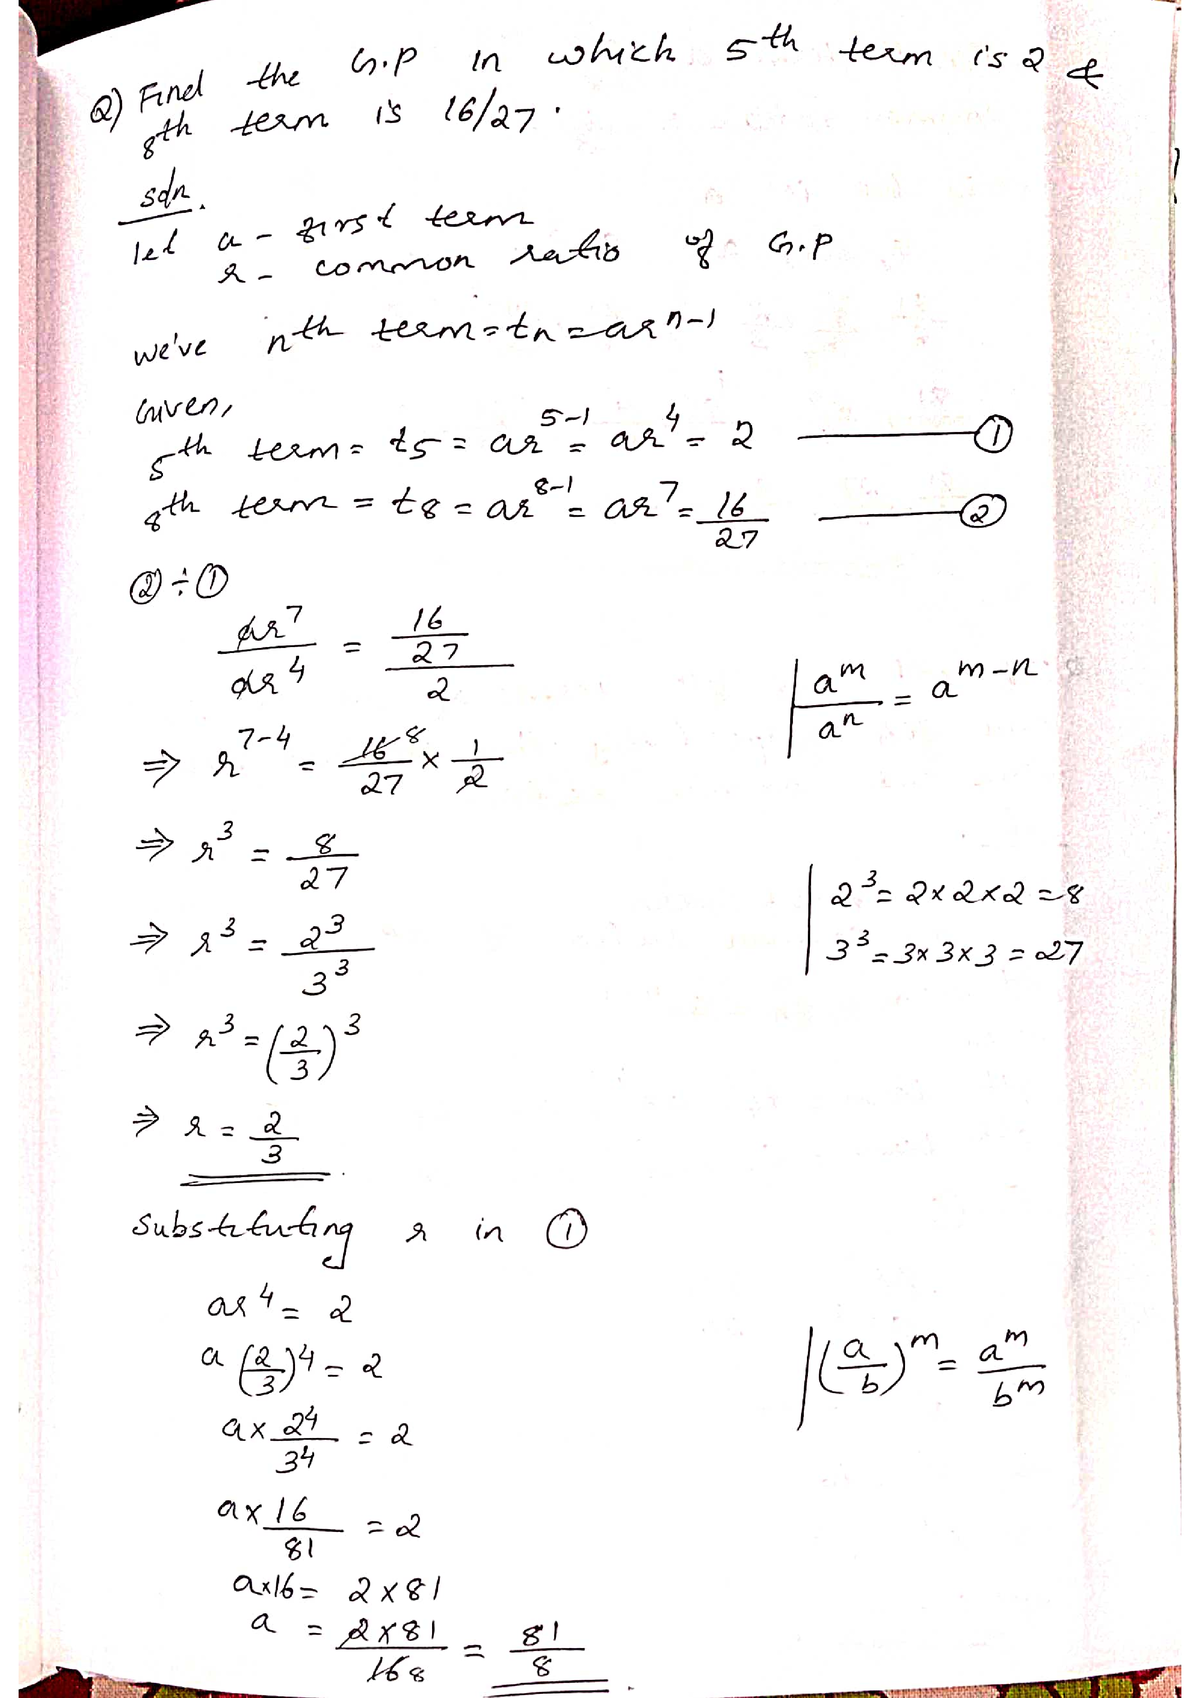 Q) Find the G.P in which 5th term is 2 &
8th term is 16/27.
soln.
let a - first term
r - common ratio of G.P
we've nth term = tn = ar^n-1
Given,
5th term = t5 = ar^5-1 = ar^4 = 2 ——— ①
8th term = t8 = ar^8-1 = ar^7 = 16/27 ——— ②
② ÷ ①
ar^7/ar^4 = 16/27/2
| a^m/a^n = a^m-n
⇒ r^7-4 = 16 8/27 × 1/2
⇒ r^3 = 8/27
| 2^3 = 2×2×2 = 8
⇒ r^3 = 2^3/3^3
3^3 = 3×3×3 = 27
⇒ r^3 = (2/3)^3
⇒ r = 2/3
Substituting r in ①
ar^4 = 2
a (2/3)^4 = 2
| (a/b)^m = a^m/b^m
a× 2^4/3^4 = 2
a× 16/81 = 2
a×16 = 2×81
a = 2×81/16 8 = 81/8.